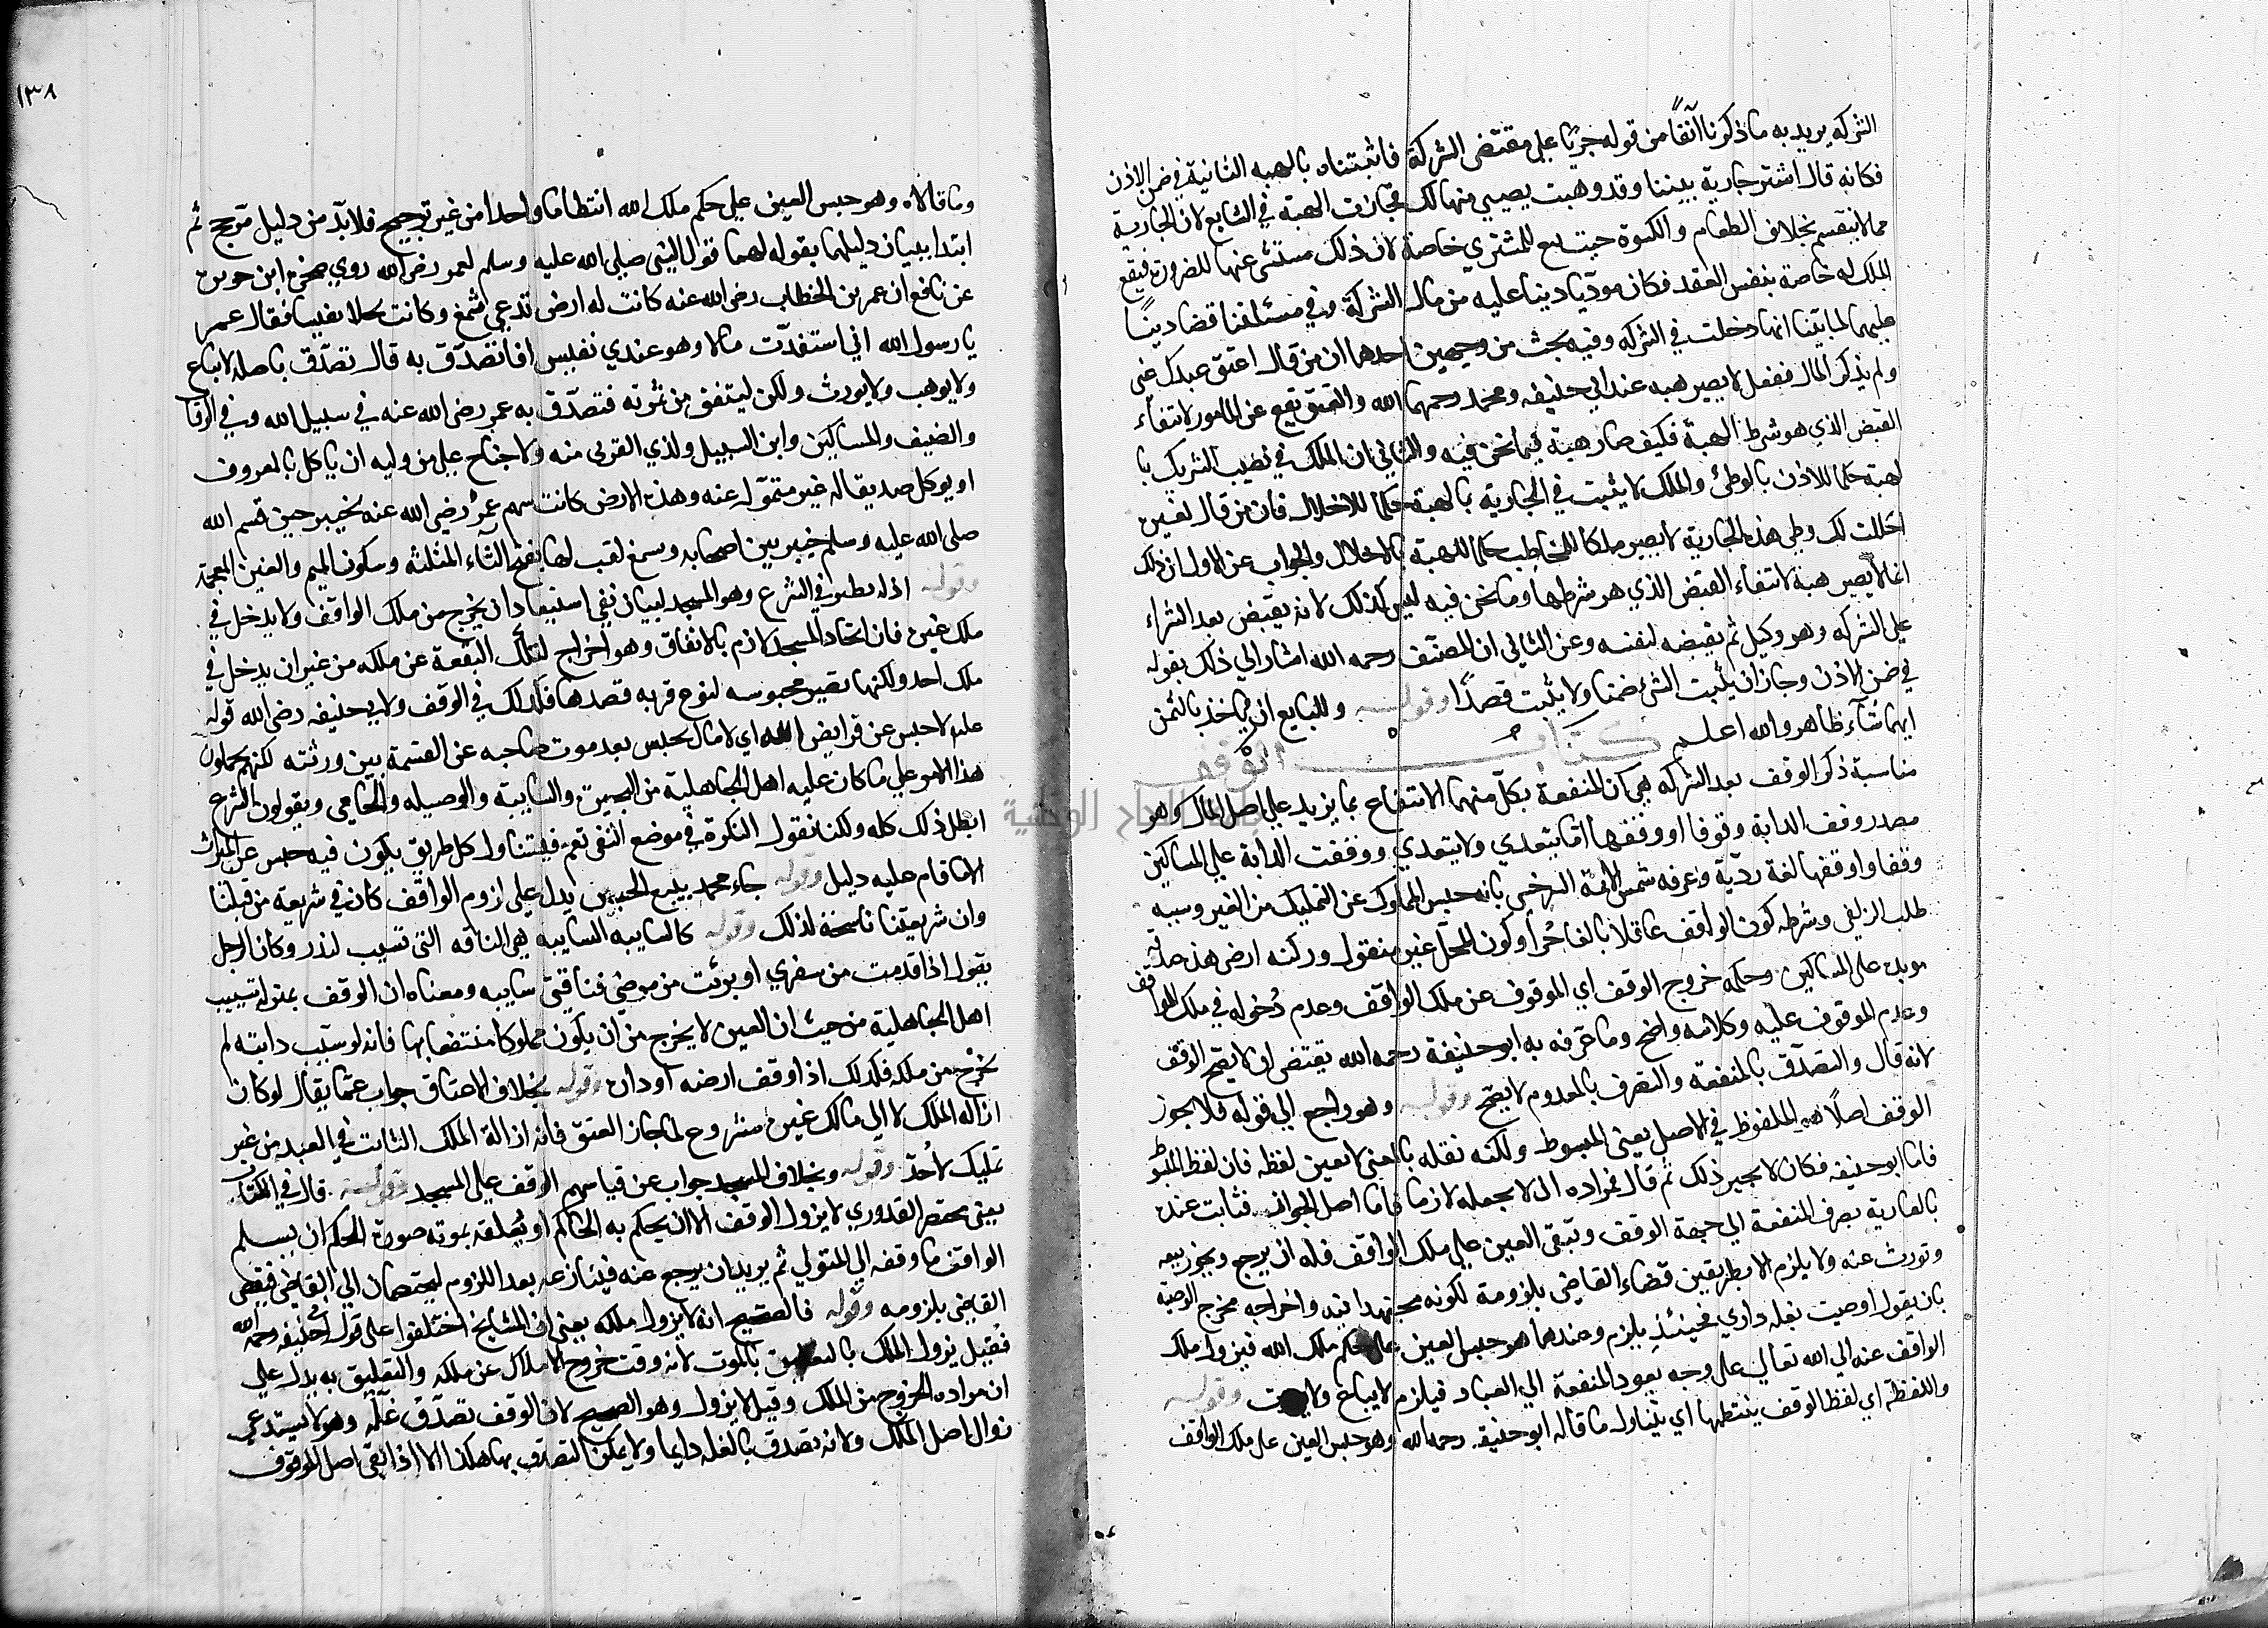 الشركه يريد به ما ذكرنا آنفاً من قوله جريًا على مقتضى الشركة فاثبتناه بالهبه الثانية في ضمن الاذن
فكانه قال اشتر جارية بيننا وقد وهبت نصيبي منها لك فجازت الهبة في الشايع لان الجارية
مما لا ينقسم بخلاف الطعام والكسوة حيث يقع للمشتري خاصة لان ذلك مستثنى عنها للضرورة فيقع
الملك له خاصة بنفس العقد فكان موديا دينا عليه من مال الشركة وفي مسئلتنا قضا دينًا
عليهما لما بيّنا انها دخلت في الشركه وفيه بحث من وجهين احدهما ان من قال اعتق عبدك عني
ولم يذكر المال ففعل لا يصير هبه عند ابي حنيفه ومحمد رحمهما الله والعتق يقع عن المامور لانتفاء
القبض الذي هو شرط الهبة فكيف صار هبة فيما نحن فيه والثاني ان الملك في نصيب الشريك با
لهبة حكما للاذن بالوطئ والملك لا يثبت في الجارية بالهبة حكما للاحلال فان من قال لغيره
احللت لك وطي هذه الجارية لا يصير ملكا للمخاطب حكما للهبة بالاحلال والجواب عن الاول ان ذلك
انما لا يصير هبة لانتفاء القبض الذي هو شرطها وما نحن فيه ليس كذلك لانه يقبض بعد الشراء
على الشركه وهو وكيل ثم يقبضه لنفسه وعن الثاني ان المصنف رحمه الله اشار الي ذلك بقوله
في ضمن الاذن وجاز ان يثبت الشئ ضمنا ولا يثبت قصدًا وقوله وللبايع ان ياخذ بالثمن
ايهما شاء ظاهر والله اعلم كتاب الوقف
مناسبة ذكر الوقف بعد الشركه هي كان المنفعة بكلّ منهما الانتفاع بما يزيد على اصل المال وهو
مصدر وقف الدابة وقوفا او وقفها انا يتعدي ولا يتعدي ووقفت الدابة على المساكين
وقفا واوقفها لغة رديّة وعرفه شمس الائمة السرخسي بانه حبس المملوك عن التمليك من الغير وسببه
طلب الزلفى وشرطه كون الواقف عاقلا بالغا حُرا وكون المحلّ غير منقول وركنه ارضى هذه صدقة
موبده على المساكين وحكمه خروج الوقف اي الموقوف عن ملك الواقف وعدم دُخوله في ملك الواقف
وعدم الموقوف عليه وكلامه واضح وما عرفه به ابو حنيفة رحمه الله يقتضي ان لا يصح الوقف
لانه قال والتصدّق بالمنفعة والتصرف بالمعدوم لا يصح وقوله وهو راجع الي قوله فلا يجوز
الوقف اصلًا هو الملفوظ في الاصل يعنى المبسوط ولكنه نقله بالمعنى لا بعين لفظه فان لفظ المبسوط
فاما ابو حنيفه فكان لا يجيز ذلك ثم قال مراده ان لا يجعله لازما فاما اصل الجواز فثابت عنده
بالعارية يصرف المنفعة الي جهة الوقف وتبقى العين على ملك الواقف فله ان يرجع ويجوز بيعه
وتورث عنه ولا يلزم الا بطريقين قضاء القاضي بلزومة لكونه مجتهدا فيه واخراجه مخرج الوصية
بان يقول اوصيت بغله داري فحينئذ يلزم وعندهما هو حبس العين على حكم ملك الله فيزول ملك
الواقف عنه الي الله تعالي على وجه يعود المنفعة الي العباد فيلزم لا يباع ولا يورث وقوله
واللفظة اي لفظ الوقف ينتظمها اي يتناول ما قاله ابو حنيفه رحمه الله وهو حبس العين على ملك الواقف
١٣٨
وما قالاه وهو حبس العين على حكم ملك الله انتظاما واحدا من غير ترجيح فلا بدّ من دليل مرجح ثم
ابتدا ببيان دليلهما بقوله لهما قول النبي صلى الله عليه وسلم لعمر رضي الله روي صخر ابن جويرية
عن نافع ان عمر بن الخطاب رضي الله عنه كانت له ارض تدعي ثمغ وكانت نخلا نفيسا فقال عمر
يا رسول الله اني استفدت مالا وهو عندي نفيس افاتصدّق به قال تصدّق باصله لا يباع
ولا يوهب ولا يورث ولكن لينفق من ثمرته فتصدّق به عمر رضي الله عنه في سبيل الله وفي الرقا
والضيف والمساكين وابن السبيل ولذي القربي منه ولا جناح على من وليه ان ياكل بالمعروف
او يوكل صديقا له غير متموّل عنه وهذه الارض كانت سهم عمر رضي الله عنه بخيبر حين قسم الله
صلى الله عليه وسلم خيبر بين اصحابه وسمغ لقب لها بفتح الثآء المثلثه وسكون الميم والغين المعجمة
وقوله اذ له نظير في الشرع وهو المسجد لبيان نفي استبعاد ان يخرج من ملك الواقف ولا يدخل في
ملك غيره فان اتخاذ المسجد لازم بالاتفاق وهو اخراج لتلك البقعة عن ملكه من غير ان يدخل في
ملك احد ولكنها تصير محبوسه لنوع قربه قصدها فكذلك في الوقف ولابي حنيفه رضي الله قوله
عليه لا حبس عن فرايض الله اي لا مال يحبس بعد موت صاحبه عن القسمة بين ورثته لكنهم يحملون
هذا الامر على ما كان عليه اهل الجاهلية من البحيرة والسايبة والوصيله والحامي ويقولون الشرع
ابطل ذلك كله ولكن نقول النكرة في موضع النفي تعم فيتناول كل طريق يكون فيه حبس عن الميراث
الا ما قام عليه دليل وقوله جاء محمد ببيع الحبيس يدل على ان لزوم الواقف كان في شريعة من قبلنا
وان شريعتنا ناسخة لذلك وقوله كالسايبه السايبه هي الناقه التي تسيب لنذر وكان الرجل
يقول اذا قدمت من سفري او برئت من مرضى فناقتى سايبه ومعناه ان الوقف بمنزلة تسييب
اهل الجاهلية من حيث ان العين لا يخرج من ان يكون مملوكا منتفعا بها فانه لو سيب دابته لم
تخرج من ملكه فكذلك اذا وقف ارضه او داره وقوله بخلاف الاعتاق جواب عمّا يقال لو كان
ازاله الملك لا الي مالك غير مشروع لما جاز العتق فانه ازالة الملك الثابت في العبد من غير
تمليك لاحد وقوله وبخلاف المسجد جواب عن قياسهم الوقف على المسجد وقوله قال في الكتاب
يعنى مختصر القدوري لا يزول الوقف الا ان يحكم به الحاكم او يُعلقه بموته صورة الحكم ان يسلم
الواقف ما وقفه الي المتولي ثم يريد ان يرجع عنه فينازعه بعد اللزوم ليختصمان الي القاضي فيقضي
القاضي بلزومه وقوله فالصحيح انه لا يزول ملكه يعنى ان المشايخ اختلفوا على قول ابي حنيفه رحمه الله
فقيل يزول الملك بالتعليق بالموت لانه وقت خروج الاملاك عن ملكه والتعليق به يدل على
ان مراده الخروج من الملك وقيل لا يزول وهو الصحيح لان الوقف تصدّق غلّه وهو لا يستدعي
زوال اصل الملك ولانه تصدق بالغله دايما ولا يمكن التصدق بها هكذا الا اذا بقي اصل الموقوف